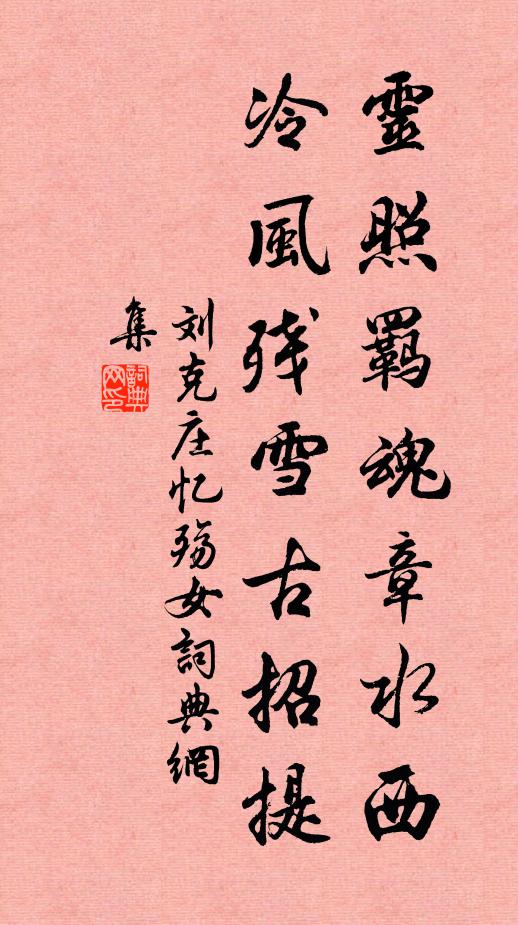 靈照羈魂章水西
冷風残雪古招提
刘克庄忆殇女詞典網
集
詞典網印